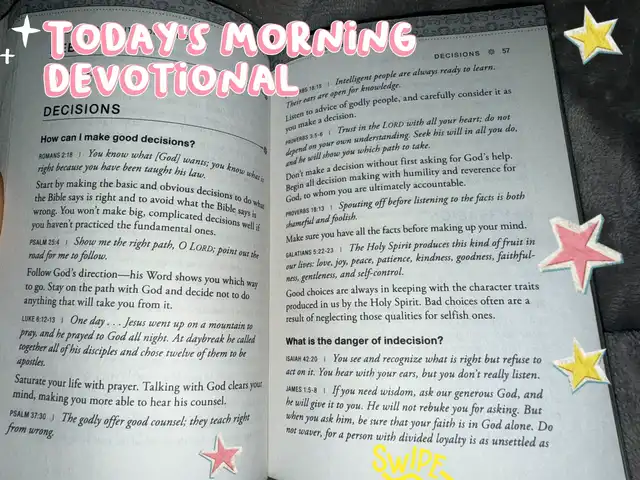 TODAY'S MORNING
DEVOTIONAL
DECISIONS
How can I make good decisions?
ROMANS 2:18 | You know what [God] wants; you know what is
right because you have been taught his law.
Start by making the basic and obvious decisions to do what
the Bible says is right and to avoid what the Bible says is
wrong. You won't make big, complicated decisions well if
you haven't practiced the fundamental ones.
PSALM 25:4 | Show me the right path, O LORD; point out the
road for me to follow.
Follow God's direction—his Word shows you which way
to go. Stay on the path with God and decide not to do
anything that will take you from it.
LUKE 6:12-13 | One day . . . Jesus went up on a mountain to
pray, and he prayed to God all night. At daybreak he called
together all of his disciples and chose twelve of them to be
apostles.
Saturate your life with prayer. Talking with God clears your
mind, making you more able to hear his counsel.
PSALM 37:30 | The godly offer good counsel; they teach right
from wrong.
DECISIONS 57
18:15 | Intelligent people are always ready to learn.
Their ears are open for knowledge.
Listen to advice of godly people, and carefully consider it as
you make a decision.
PROVERBS 3:5-6 | Trust in the LORD with all your heart; do not
depend on your own understanding. Seek his will in all you do,
and he will show you which path to take.
Don't make a decision without first asking for God's help.
Begin all decision making with humility and reverence for
God, to whom you are ultimately accountable.
PROVERBS 18:13 | Spouting off before listening to the facts is both
shameful and foolish.
Make sure you have all the facts before making up your mind.
GALATIANS 5:22-23 | The Holy Spirit produces this kind of fruit in
our lives: love, joy, peace, patience, kindness, goodness, faithful-
ness, gentleness, and self-control.
Good choices are always in keeping with the character traits
produced in us by the Holy Spirit. Bad choices often are a
result of neglecting those qualities for selfish ones.
What is the danger of indecision?
ISAIAH 42:20 | You see and recognize what is right but refuse to
act on it. You hear with your ears, but you don't really listen.
JAMES 1:5-8 | If you need wisdom, ask our generous God, and
he will give it to you. He will not rebuke you for asking. But
when you ask him, be sure that your faith is in God alone. Do
not waver, for a person with divided loyalty is as unsettled as
SWIPE